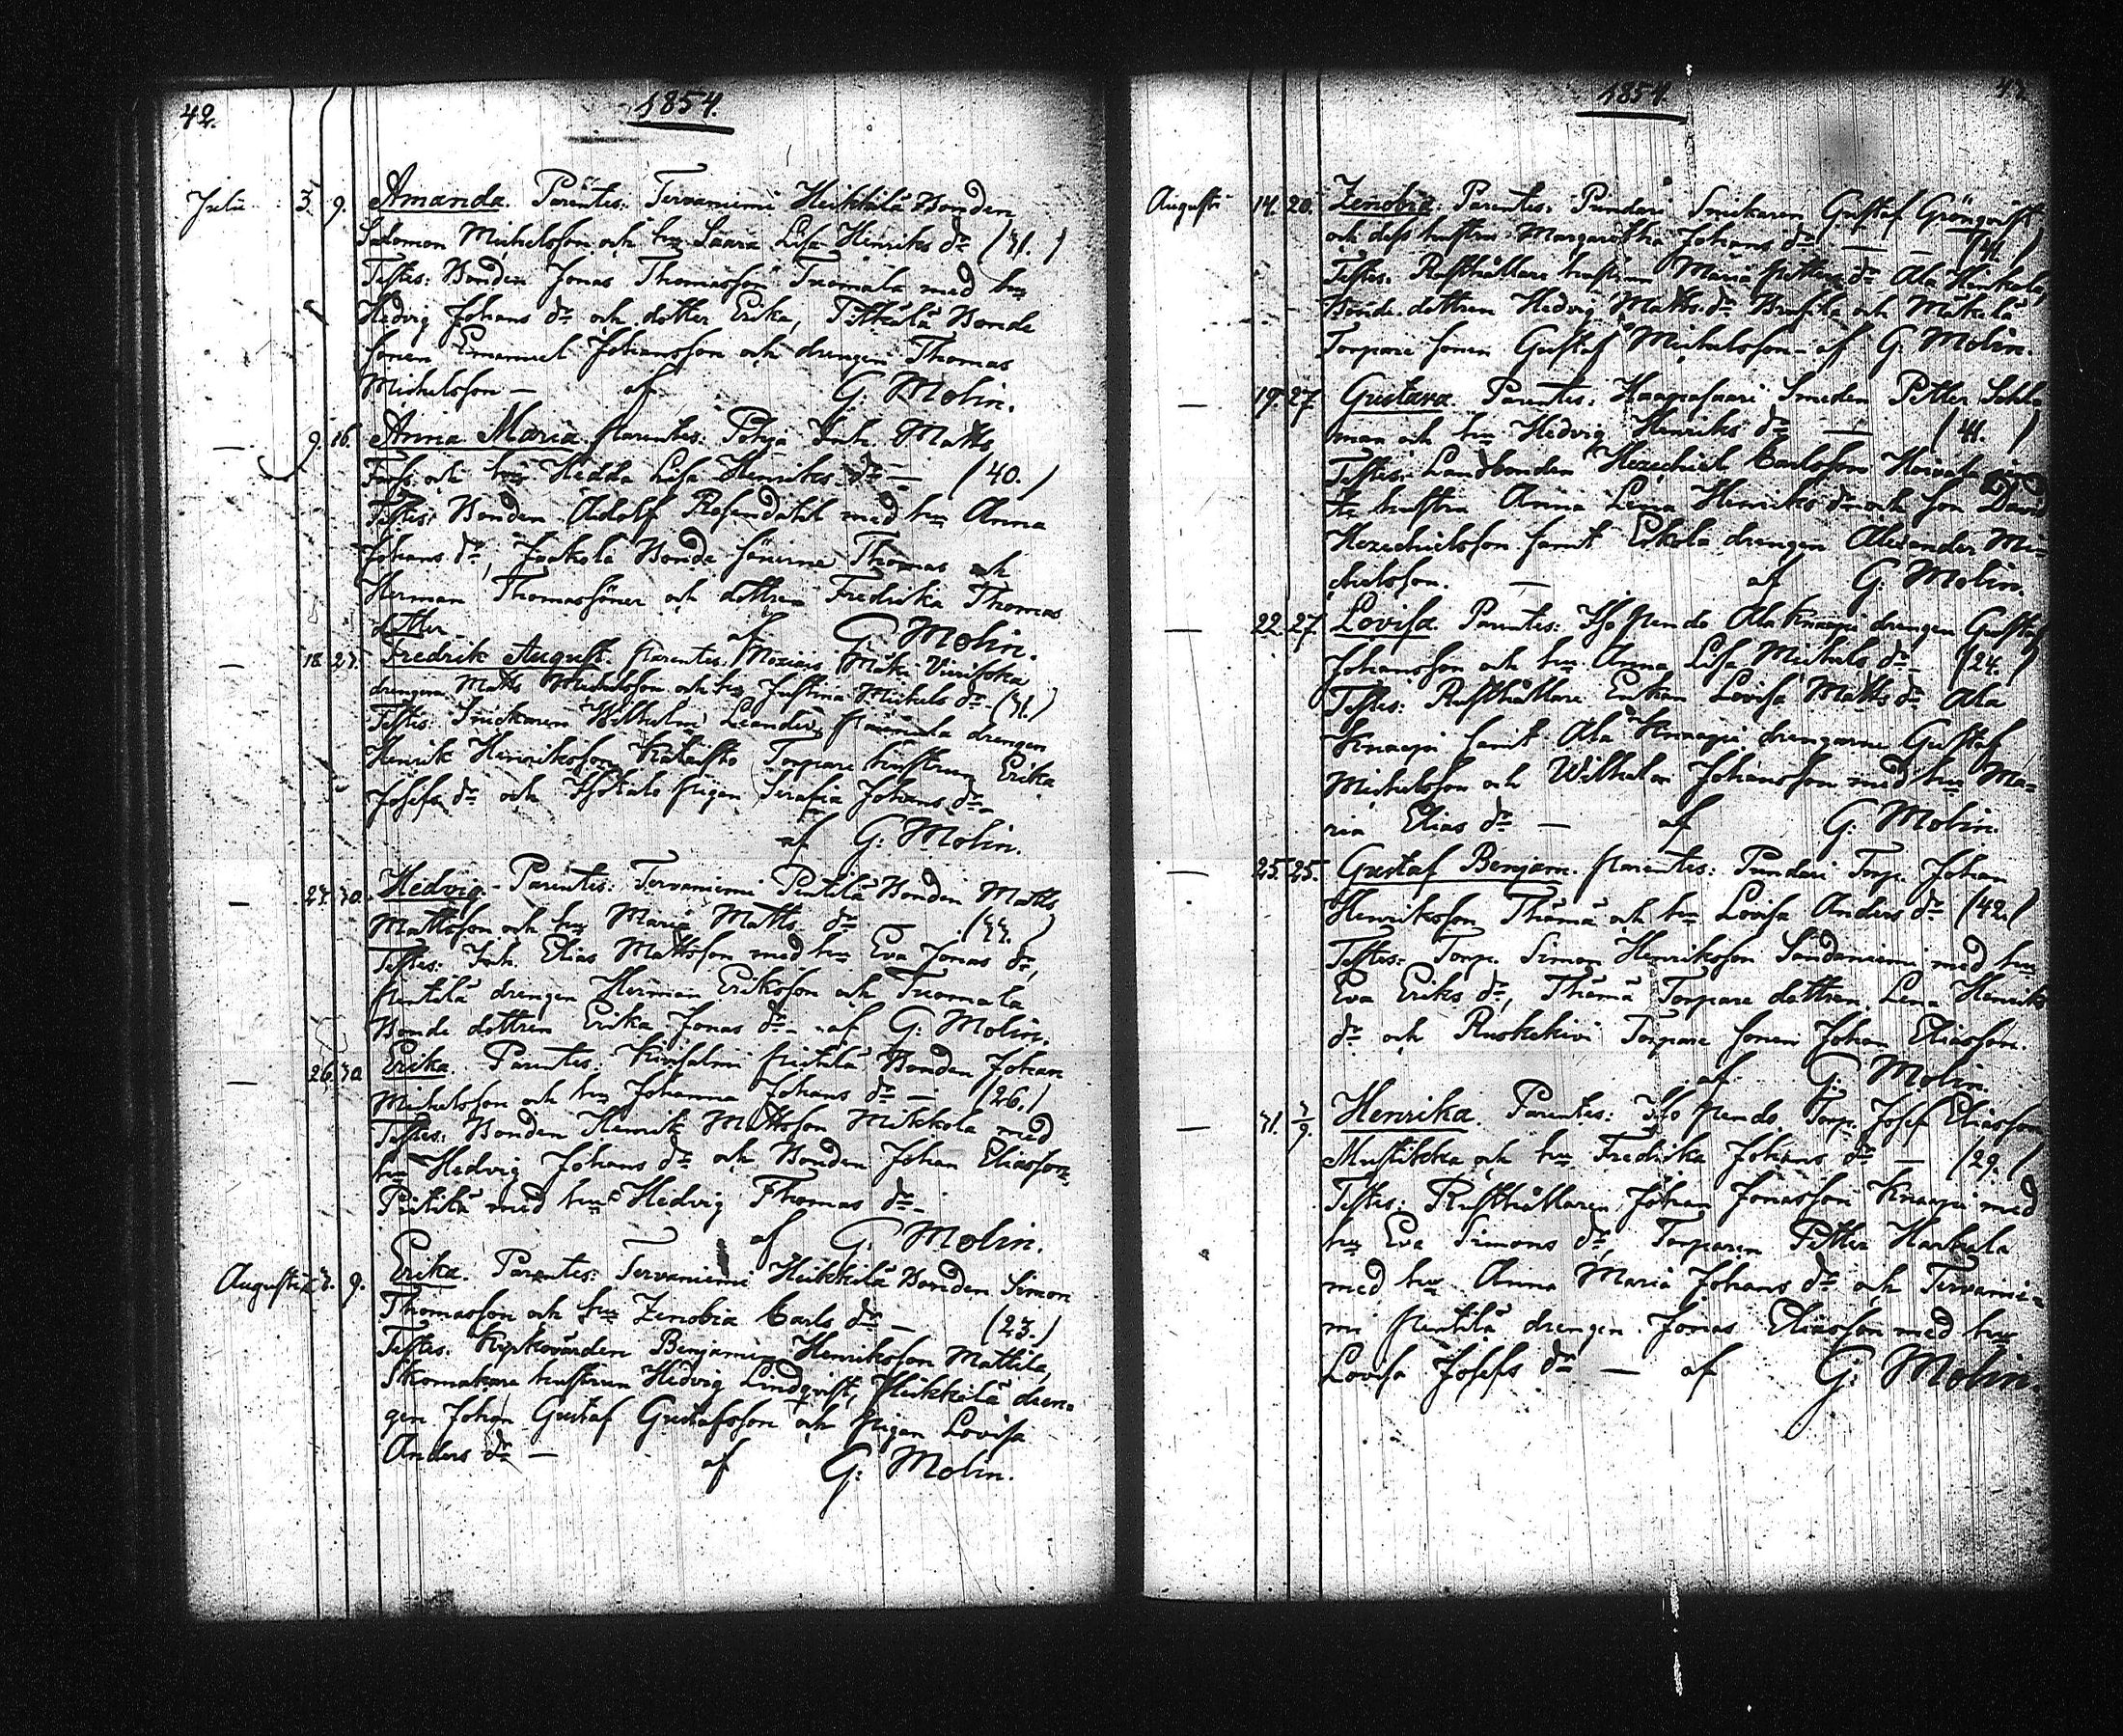 42.
1854.
Julii 3. 9. Amanda. Parentes: Tervaniemi Heikkilä Bonden
Salomon Michelsson och hu Saara Lisa Henriks dr (31.)
Testes: Bonden Jonas Thomasson Tuomala med hu
Hedvig Johans dr och dotter Erika, Pitkälä Bonde
sonen Emanuel Johansson och drengen Thomas
Michelsson — af G. Molin.
— 9. 16. Anna Maria. Parentes: Pohja Inh. Matts
Forss och hu Hedda Lisa Henriks dr — (40.)
Testes: Bonden Adolf Rosendahl med hu Anna
Johans dr, Jaakola Bonde sönerne Thomas och
Herman Thomassöner och dottren Fredrika Thomas
dotter — af G. Molin.
— 18. 23. Fredrik August. Parentes: Mäki
drengen Matts Michelsson och hu Justina Michels dr (31.)
Testes: Snickaren Wilhelm Leander, drengen
Henrik Henriksson, Torpare hustrun Erika
Josefs dr och pigan Serafia Johans dr —
af G: Molin.
— 23. 30. Hedvig. Parentes: Tervaniemi Pentilä Bonden Matts
Mattsson och hu Maria Matts dr — (33.)
Testes: Inh. Elias Mattsson med hu Eva Jonas dr,
Pentilä drengen Herman Eriksson och Tuomala
Bonde dottren Erika Jonas dr — af G: Molin.
— 26. 30 Erika. Parentes: Pietilä Bonden Johan
Michelsson och hu Johanna Johans dr — (26.)
Testes: Bonden Henrik Mattsson Mikkola med
hu Hedvig Johans dr och Bonden Johan Eliasson
Pietilä med hu Hedvig Thomas dr —
af G. Molin.
Augusti 9. Erika. Parentes: Tervaniemi Heikkilä Bonden Simon
Thomasson och hu Zenobia Carls dr — (23.)
Testes: Kyrkovärden Benjamin Henriksson Mattila,
Skomakare hustrun Hedvig Lindqvist, Heikkilä dren-
gen Johan Gustaf Gustafsson och Pigan Lovisa
Anders dr — af G: Molin.
1854.
Augusti 14. 20. Zenobia. Parentes: Punderi Snickaren Gustaf Grönqvist
och dess hustru Margaretha Johans dr — — (41.)
Testes: Rusthållare hustrun Maria Petters dr Ala
Bonde dottren Hedvig Matts dr och Mäkelä
Torpare sonen Gustaf Michelsson — af G: Molin.
— 19. 27. Gustava. Parentes: Haapasaari Smeden Petter Sahl-
man och hu Hedvig Henriks dr — (41.)
Testes: Landbonden Hezechiel Carlsson
hustru Anna Lena Henriks dr och son David
Hezechielsson samt Eskola drengen Alexander Mi-
chelsson. — af G: Molin.
— 22. 27. Lovisa. Parentes: Iso Pendo Ala Knaapi drengen Gustaf
Johansson och hu Anna Lisa Michels dr — (24.)
Testes: Rusthållare Enkan Lovisa Matts dr Ala
Knaapi samt Ala Knaapi drengarne Gustaf
Michelsson och Wilhelm Johansson med hu Ma-
ria Elias dr — af G: Molin.
— 25. 25. Gustaf Benjam. Parentes: Punderi Torp. Johan
Henriksson Thämä och hu Lovisa Anders dr (42.)
Testes: Torp. Simon Henriksson Sandaniemi med hu
Eva Eriks dr, Thämä Torpare dottren Lena Henriks
dr och Ruskekivi Torpare sonen Johan Eliasson.
af G: Molin.
— 31. 3/9. Henrika. Parentes: Iso Pendo Torp. Josef Eliasson
Mustikka och hu Fredrika Johans dr — (29.)
Testes: Rusthållaren Johan Jonasson Knaapi med
hu Eva Simons dr, Torparen Petter Harkula
med hu Anna Maria Johans dr och Tervanie-
mi Pentilä drengen Jonas Eliasson med hu
Lovisa Josefs dr — af G: Molin.